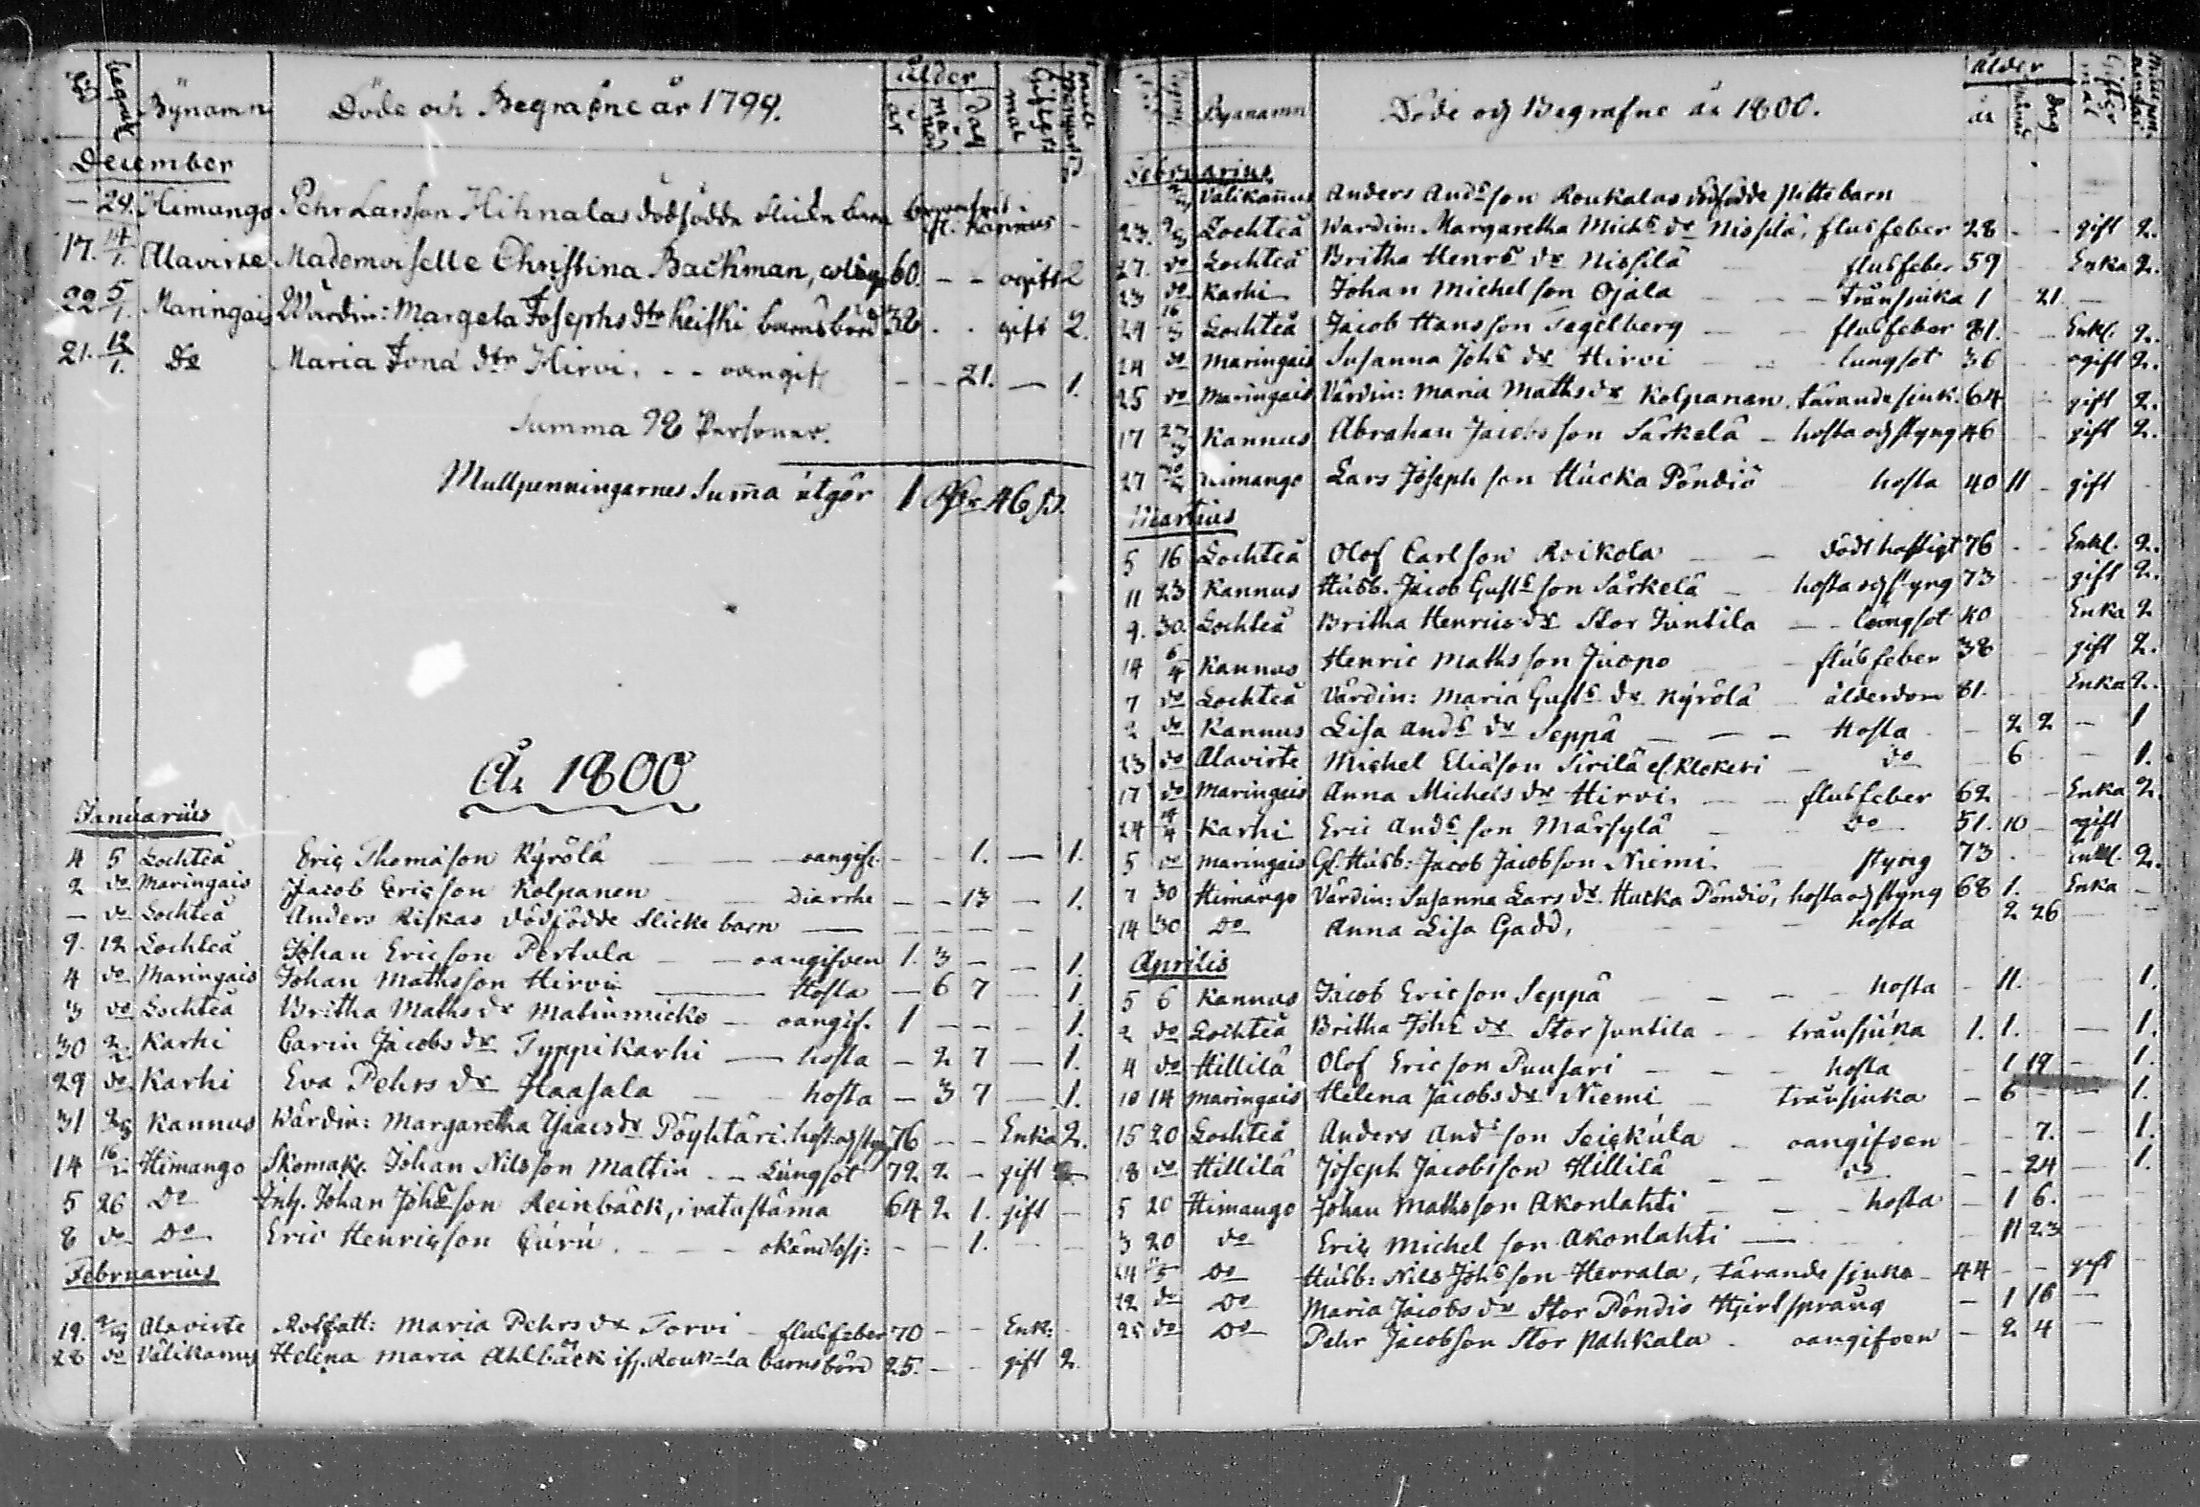 Död begrafn Bynamn Döde och Begrafne år 1799. ålder år månad dag Giftermål
December
— 24. Himango Pehr Larsson Hihnalas dödfödde
17. 14/1. Alavirte Mademoiselle Christina Bachman, 60. - - ogift 2
22 5/1. Maringais Wärdin: Margeta Josephs dtr Heiski barnsbörd 32 . . gift 2.
21. 12/1. Do Maria Jona dtr Hirvi. - - oangif - - 21. — 1.
Summa 92 Personer.
Mullpenningarnes Summa utgör 1 46
År 1800
Januarius
4 5 Lochteå Eric Thomasson Kyrölä — oangif. - - 1. — 1.
2 do Maringais Jacob Ericson Kolpanen — Diarrhe — - 13 — 1.
— do Lochteå Anders Riskas dödfödde flicke barn —
9. 12 Lochteå Johan Ericson Pertula — oangifven 1. 3 — — 1.
4 do Maringais Johan Mathsson Hirvi — Hosta — 6 7 — 1.
3 do Lochteå Britha Maths dr Matinmicko — oangif. 1 — — — 1.
30 2/2 Karhi Carin Jacobs dr Typpikarhi — hosta — 2 7 — 1.
29 do Karhi Eva Pehrs dr Haasala — hosta — 3 7 — 1.
31 Kannus Wärdin: Margaretha Isaacs dr Pöyhtäri. 76 — — Enka 2.
14 16 Himango Skomak. Johan Nilsson Mattin - - Lungsot 72 2 — gift
5 26 Do Inh. Johan Johsson Reinbäck, 64 2 1. gift —
8 do Do Eric Henricson — — 1. —
Februarius
19. Alavirte Maria Pehrs dr Torvi — flussfeber 70 — — Enk.
28 do Välikannus Helena Maria Ahlbäck barnsbörd 25. — — gift 2.
Byanamn Döde och Begrafne år 1800. ålder år månad dag Giftermål
Februarius
Välikannus Anders Andsson Roukalas dödfödde barn
23. 2/3 Lochteå Wärdin: Margaretha Michs dr Nissilä, flussfeber 28 - - gift 2.
27. do Lochteå Britha Henrs dr Nissilä flussfeber 59 Enka 2.
23 do Karhi Johan Michelson Ojala — transjuka 1 - 21. —
24 16/3 Lochteå Jacob Hansson Tegelberg — flussfeber 81. - - Enkl. 2.
24 do Maringais Susanna Johs dr Hirvi — lungsot 36 ogift 2.
25 do Maringais Värdin: Maria Maths dr Kolpanan. tärande sjuk. 64 gift 2.
17 23/3 Kannus Abraham Jacobsson Särkelä — hosta och styng 46 gift 2.
27 Himango Lars Josephson Hucka Pöndiö hosta 40 11 — gift
Martius
5 16 Lochteå Olof Carlson Roikola — dödt hastigt 76 - - Enkl. 2.
11 23 Kannus Husb. Jacob Gustsson Särkelä — hosta och styng 73 - - gift 2.
9. 30. Lochteå Britha Henrics dr Stor Juntila — — lungsot 40 Enka 2
14 6/4 Kannus Henric Mathsson Juopo — flussfeber 38 gift 2.
7 do Lochteå Värdin: Maria Gusts dr Kyrölä — ålderdom 81. Enka 2.
2 do Kannus Lisa Ands dr Seppä — — — Hosta - 2 2 — 1
23 do Alavirte Michel Eliasson Sirilä — do — 6 — 1.
17 do Maringais Anna Michels dr Hirvi. — flussfeber 62 - - Enka 2.
24 14/4 Karhi Eric Andsson Märsylä — do — 51. 10 — ogift
5 do Maringais Gl. Husb. Jacob Jacobson Niemi. — styng 73 - - Enkl. 2.
7 30 Himango Värdin: Susanna Lars dr. Hucka Pöndiö, hosta och styng 68 1. - Enka —
14 30 Do Anna Lisa Gadd, — hosta 2 26 —
Aprilis
5 6 Kannus Jacob Ericson Seppä — — — hosta - 11. — 1.
2 do Lochteå Britha Johs dr Stor Juntila - - transjuka 1. 1. — 1.
4 do Hillilä Olof Ericson Puusari — — hosta - 1 19 — 1.
10 14 Maringais Helena Jacobs dr Niemi — transjuka - 6 — 1.
15 20 Lochteå Anders Andsson — oangifven - - 7. — 1.
18 do Hillilä Joseph Jacobsson Hillilä — do - - 24 — 1.
5 20 Himango Johan Mathsson Akonlahti — — hosta — 1 6. —
3 20 do Eric Michelson Akonlahti — 11 23 —
24 do Husb: Nils Johsson Herrala, tärande sjuka — 44 - - gift
22 do Do Maria Jacobs dr Stor Pöndiö — 1 16 —
25 do Do Pehr Jacobson Stor Pahkala — oangifven — 2 4 —